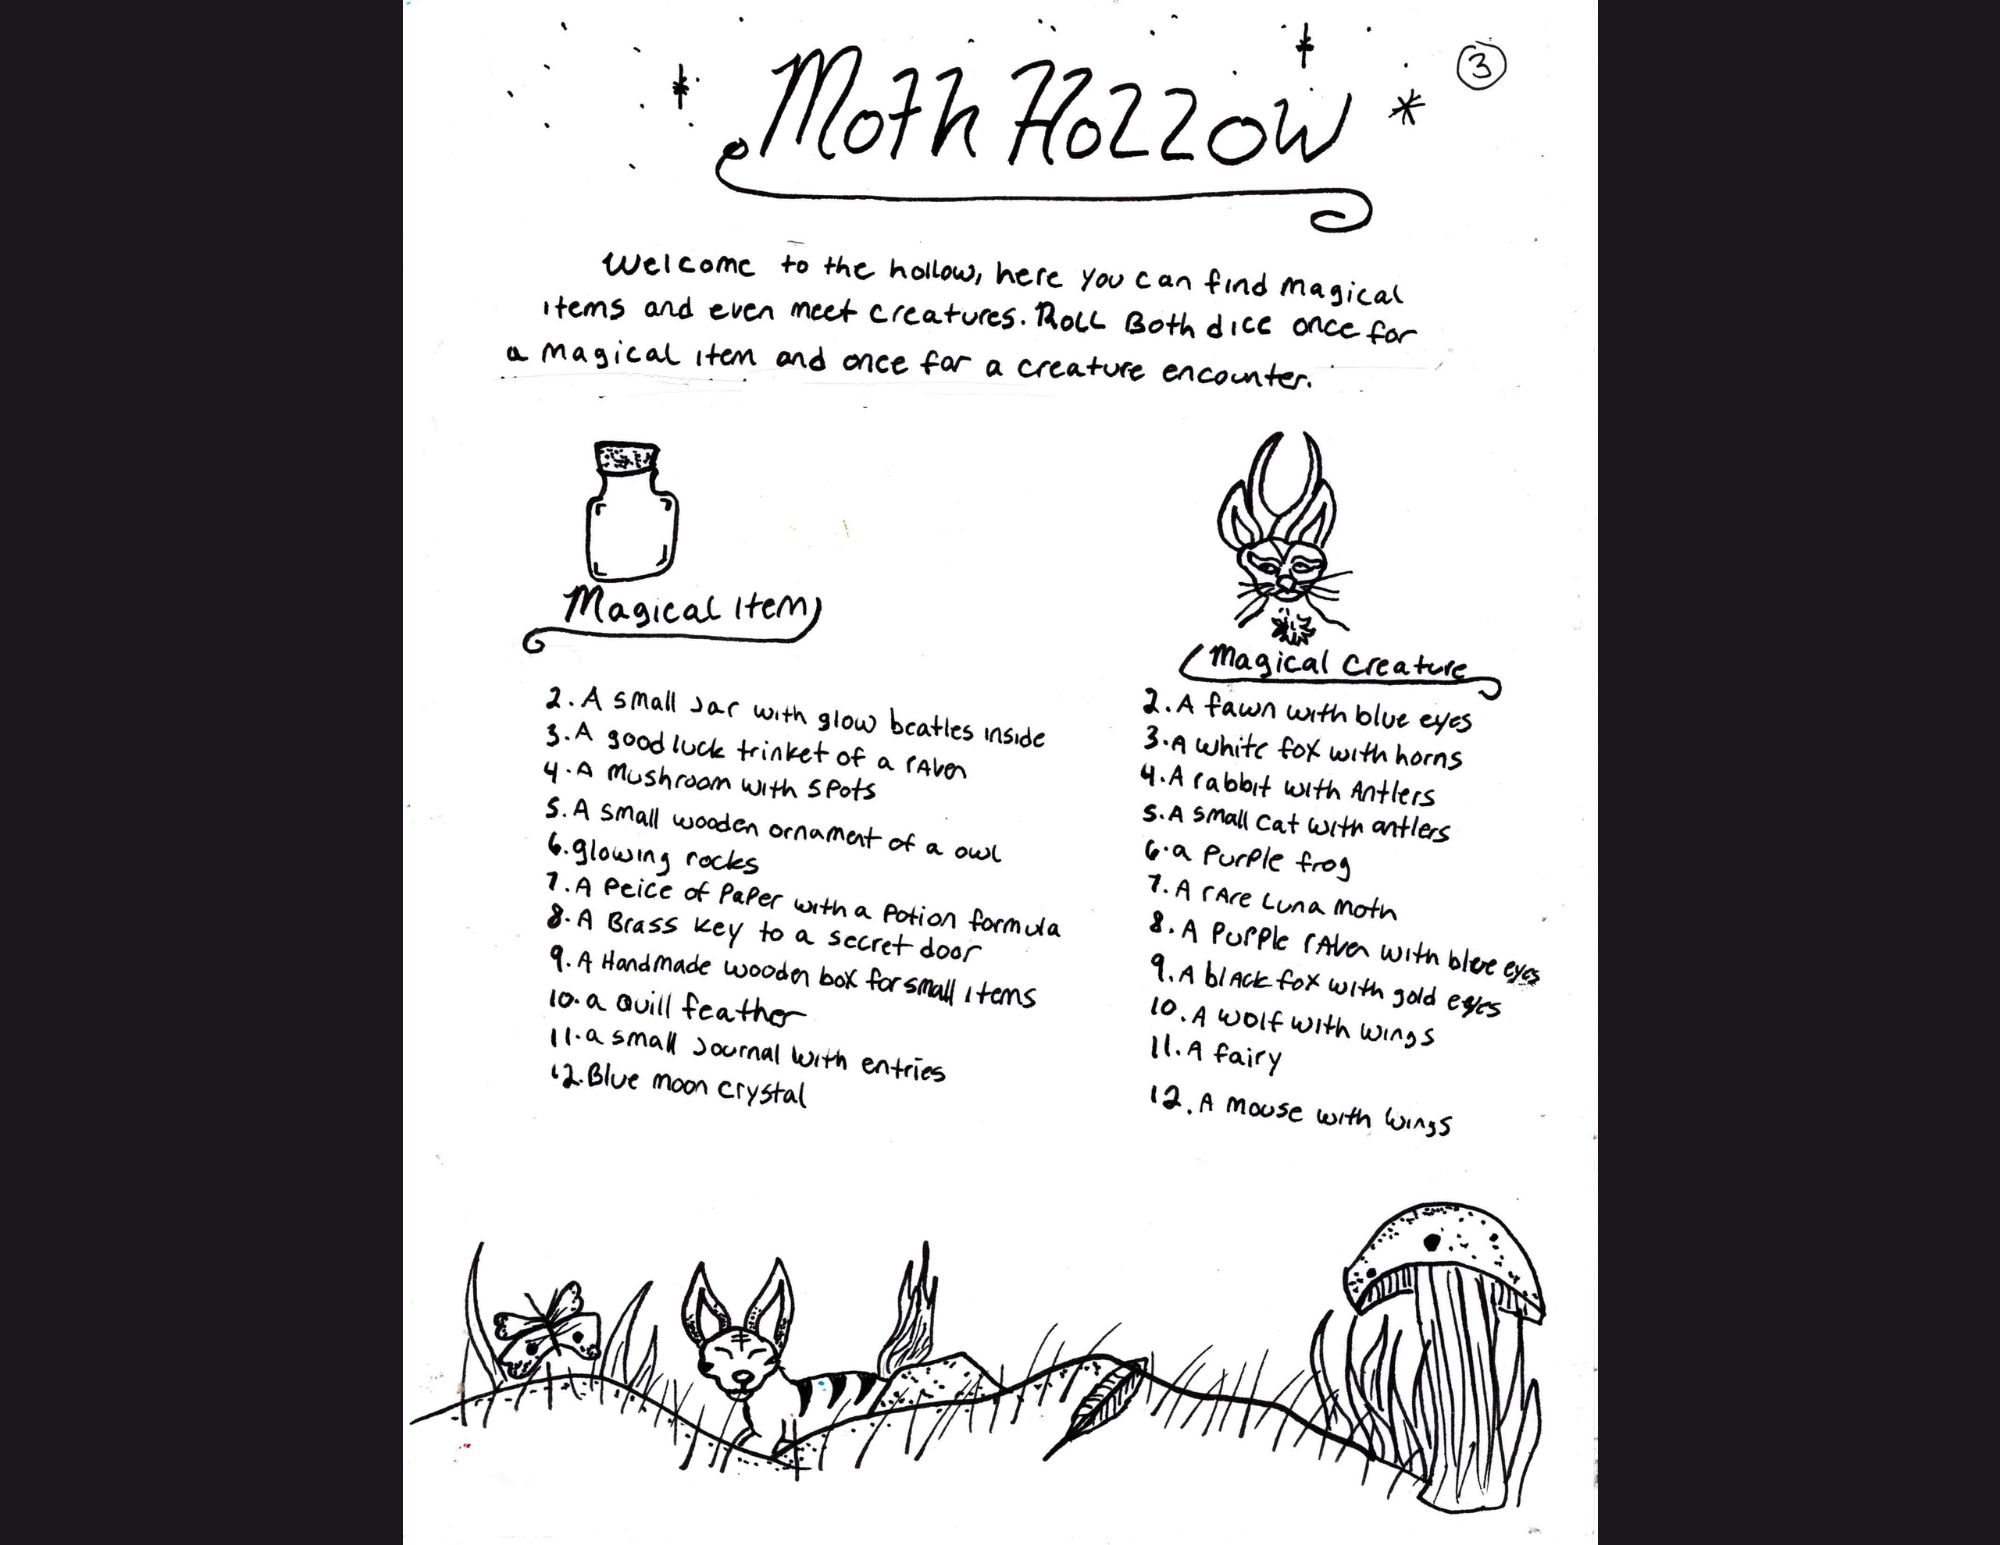 3
Moth Hollow
Welcome to the hollow, here you can find magical
items and even meet creatures. Roll Both dice once for
a magical item and once for a creature encounter.
Magical item
2. A small jar with glow beatles inside
3. A good luck trinket of a rAven
4. A mushroom with spots
5. A small wooden ornament of a owl
6. glowing rocks
7. A Peice of PaPer with a Potion formula
8. A Brass key to a secret door
9. A Handmade wooden box for small items
10. a Quill feather
11. a small journal with entries
12. Blue moon crystal
Magical creature
2. A fawn with blue eyes
3. A white fox with horns
4. A rabbit with Antlers
5. A small cat with antlers
6. a PurPle frog
7. A rAre Luna moth
8. A PurPle rAven with blue eyes
9. A blAck fox with gold eyes
10. A wolf with wings
11. A fairy
12. A mouse with wings